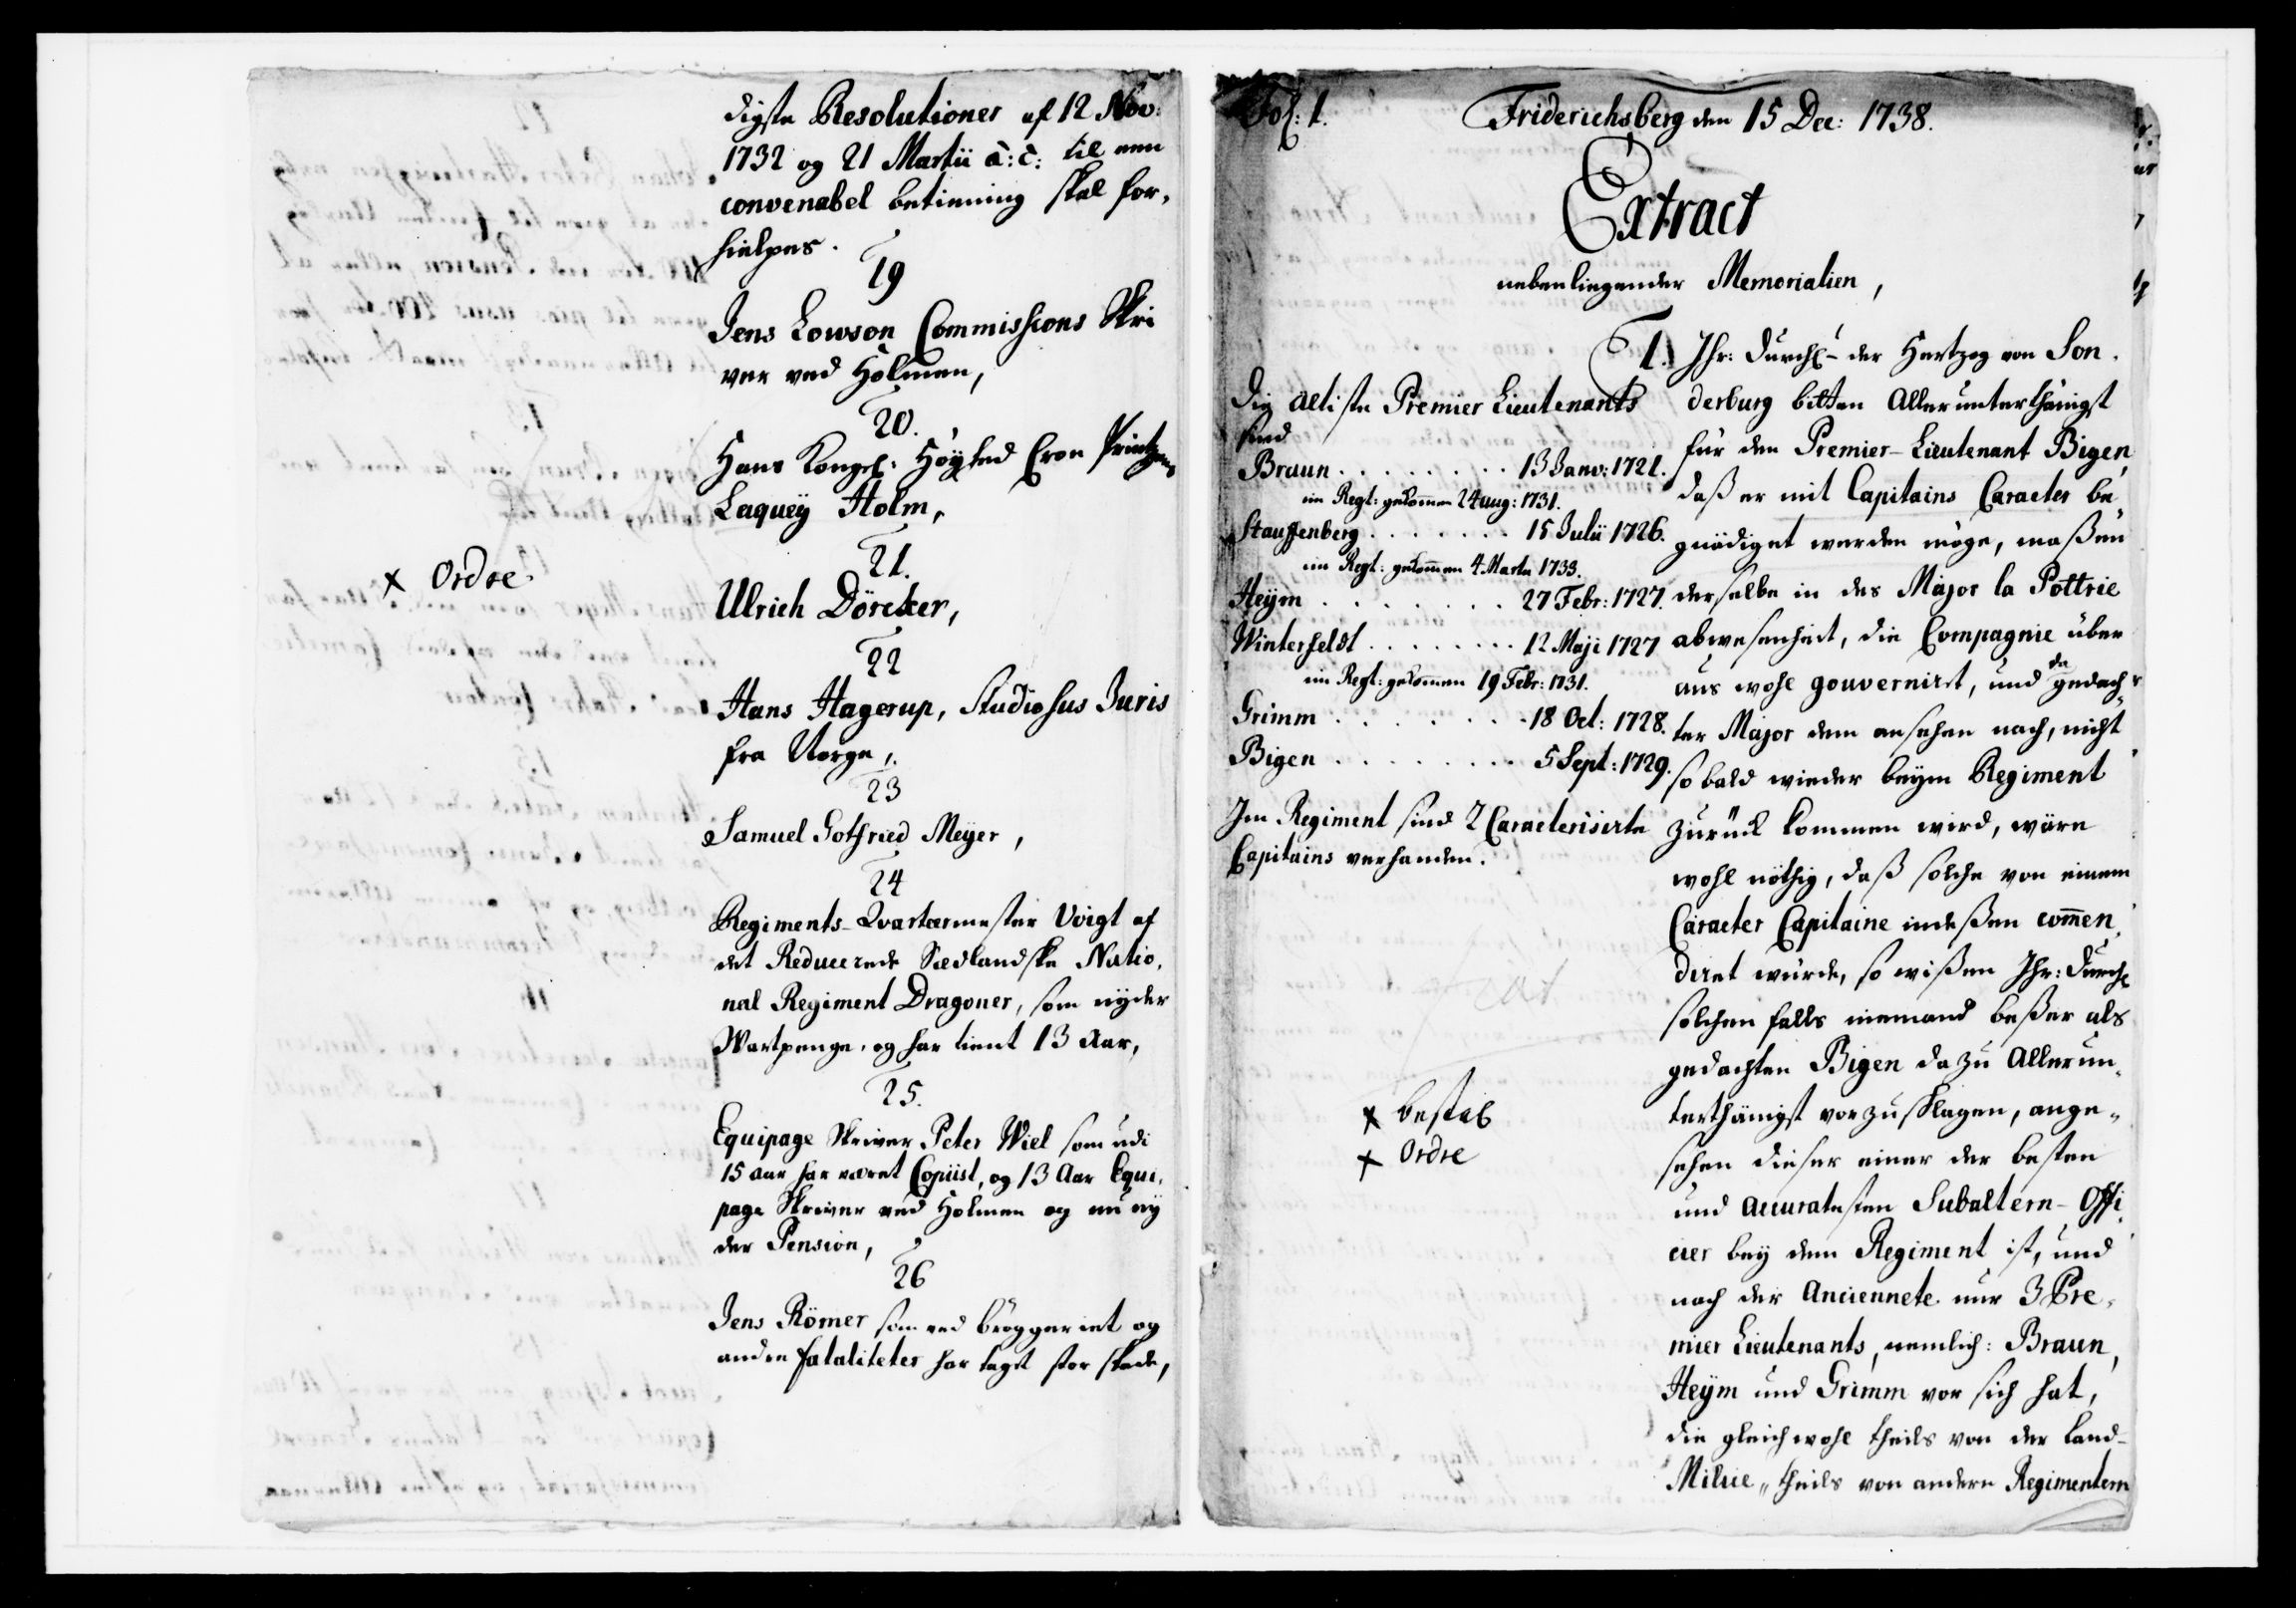 digste Resolutioner af 12 Nov:
1732 og 21 Martii a: c: til een
convenabel betienning skal for-
hielpes.
19
Jens Lowson Commissions Skri
ver ved Holmen,
20.
Hans Kongel: Høyhed Cron Printzens
Laquey Holm,
21.
× Ordre
Ulrich Dörcker,
22
Hans Hagerup, Studiosus Juris
fra Norge,
23
Samuel Gotfried Meyer,
24
Regiments-Qvarteermester Voigt af
det Reducerede Siedlandske Natio-
nal Regiment Dragoner, som nyder
Wartpenge, og har tient 13 Aar,
25.
Equipage Skriver Peter Wiel som udi
15 aar har været Copiist, og 13 Aar Equi-
page Skriver ved Holmen og nu ny
der Pension,
26
Jens Römer som ved bryggeriet og
andre fataliteter har taget stor skade,
Fol: 1.
Friderichsberg den 15 Dec: 1738.
Extract
nebenliegender Memorialien,
Die ältiste Premier Lieutenants
sind
Braun . . . . . . . . 13 Janv: 1721.
im Regt: gekommen 24 aug: 1731.
Stauffenberg . . . . . . . 15 Julii 1726.
im Regt: gekommen 4. Martii 1733.
Heÿm . . . . . . . 27 Febr: 1727.
Winterfeldt . . . . . . . . 12 Maji 1727
im Regt: gekommen 19 Febr: 1731.
Grimm . . . . . . . 18 Oct: 1728.
Bigen . . . . . . . . 5 Sept: 1729.
Im Regiment sind 2 Caracterisirte
Capitains verhanden.
× bestal
× Ordre
1. Ihr: Durchl der Hertzog von Son-
derburg bitten Allerunterthänigst
für den Premier-Lieutenant Bigen,
daß er mit Capitains Caracter be-
gnädiget werden möge, maßen
derselbe in des Major la Pottrie
abwesenheit, die Compagnie über
aus wohl gouvernirt, und da gedach-
ter Major dem ansehen nach, nicht
so bald wieder beym Regiment
zurück kommen wird, wäre
wohl nöthig, daß solche von einem
Caracter Capitaine indeßen commen-
diret würde, so wißen Ihr: Durchl
solchen falls niemand beßer als
gedachten Bigen dazu Allerun-
terthänigst vorzuschlagen, ange-
sehen dieser einer der besten
und accuratesten Subaltern-Offi-
cier bey dem Regiment ist, und
nach der Anciennete nur 3 Pre-
mier Lieutenants, nemlich: Braun,
Heÿm und Grimm vor sich hat,
die gleichwohl theils von der Land-
Milice, theils von andern Regimentern